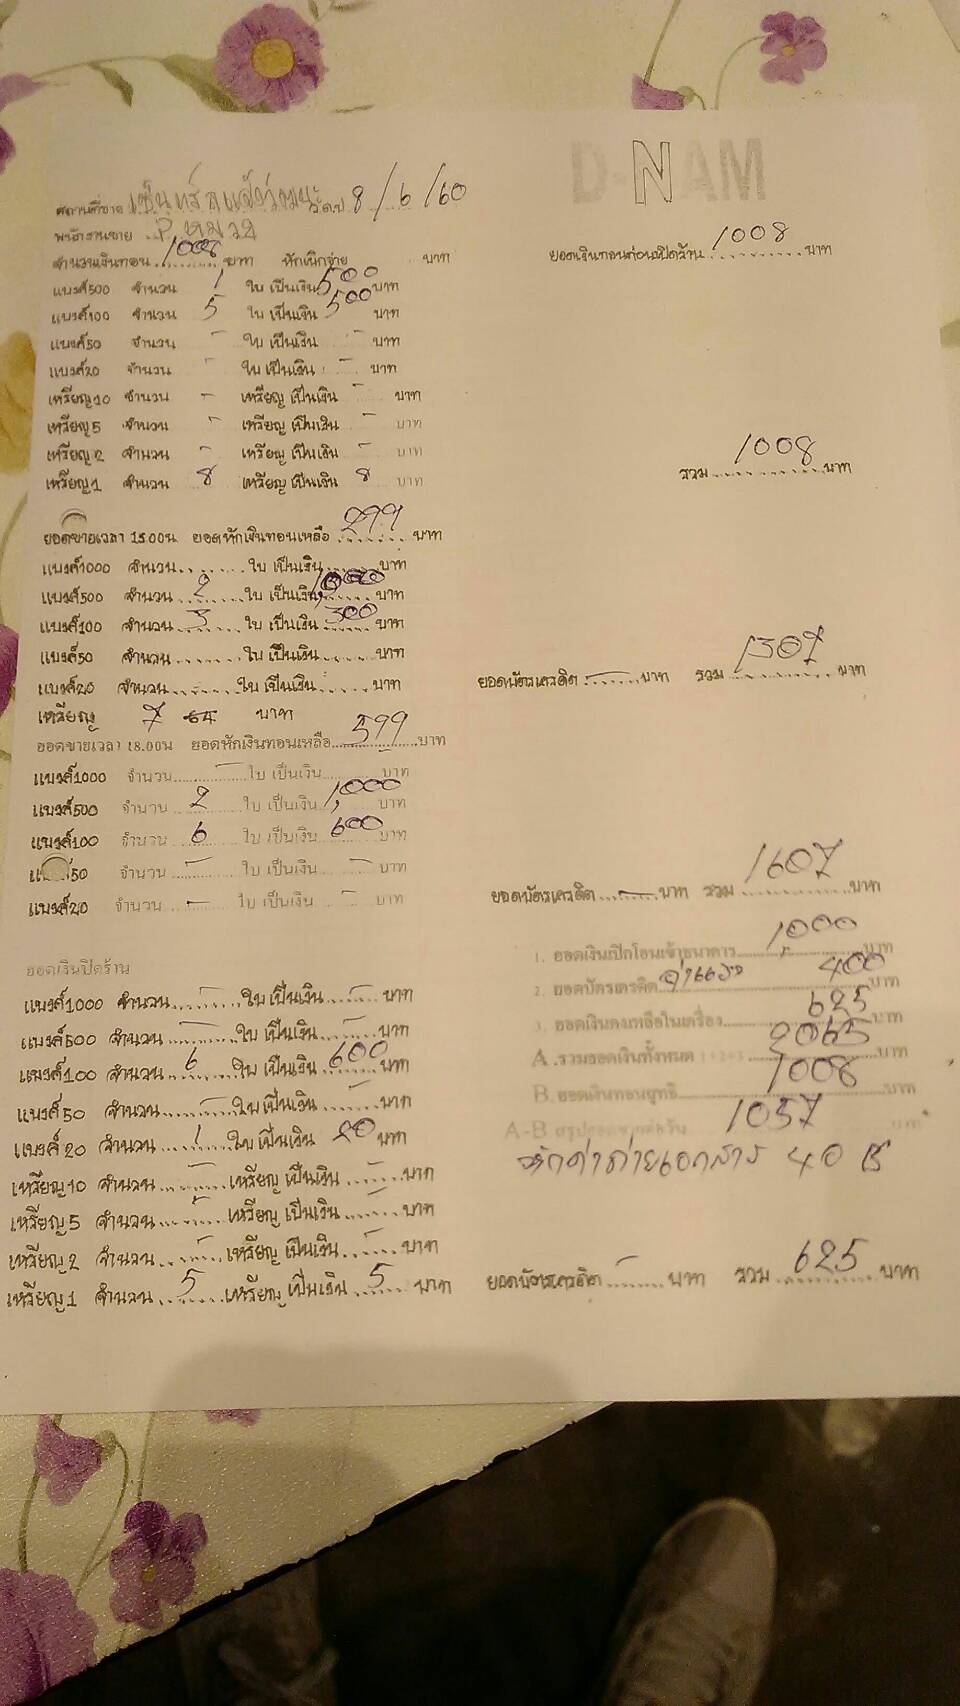 D-NAM
สถานที่ขาย เซ็นทรัลแจ้งวัฒนะ ว/ด/ป 8/6/60
พนักงานขาย
จำนวนเงินทอน 1008 บาท หักเบิกจ่าย บาท ยอดเงินทอนก่อนเปิดร้าน 1008 บาท
แบงค์500 จำนวน 1 ใบ เป็นเงิน 500 บาท
แบงค์100 จำนวน 5 ใบ เป็นเงิน 500 บาท
แบงค์50 จำนวน - ใบ เป็นเงิน - บาท
แบงค์20 จำนวน - ใบ เป็นเงิน - บาท
เหรียญ10 จำนวน - เหรียญ เป็นเงิน - บาท
เหรียญ5 จำนวน - เหรียญ เป็นเงิน - บาท
เหรียญ2 จำนวน - เหรียญ เป็นเงิน - บาท
เหรียญ1 จำนวน 8 เหรียญ เป็นเงิน 8 บาท รวม 1008 บาท
ยอดขายเวลา 15.00น ยอดหักเงินทอนเหลือ 299 บาท
แบงค์1000 จำนวน ใบ เป็นเงิน บาท
แบงค์500 จำนวน 2 ใบ เป็นเงิน 1,000 บาท
แบงค์100 จำนวน 3 ใบ เป็นเงิน 300 บาท
แบงค์50 จำนวน ใบ เป็นเงิน บาท
แบงค์20 จำนวน ใบ เป็นเงิน บาท ยอดบัตรเครดิต - บาท รวม 1307 บาท
เหรียญ 7 บาท
ยอดขายเวลา 18.00น ยอดหักเงินทอนเหลือ 599 บาท
แบงค์1000 จำนวน - ใบ เป็นเงิน - บาท
แบงค์500 จำนวน 2 ใบ เป็นเงิน 1,000 บาท
แบงค์100 จำนวน 6 ใบ เป็นเงิน 600 บาท
แบงค์50 จำนวน - ใบ เป็นเงิน - บาท
แบงค์20 จำนวน - ใบ เป็นเงิน - บาท ยอดบัตรเครดิต - บาท รวม 1607 บาท
ยอดเงินปิดร้าน
แบงค์1000 จำนวน - ใบ เป็นเงิน - บาท
แบงค์500 จำนวน - ใบ เป็นเงิน - บาท
แบงค์100 จำนวน 6 ใบ เป็นเงิน 600 บาท
แบงค์50 จำนวน - ใบ เป็นเงิน - บาท
แบงค์20 จำนวน 1 ใบ เป็นเงิน 20 บาท
เหรียญ10 จำนวน - เหรียญ เป็นเงิน - บาท
เหรียญ5 จำนวน - เหรียญ เป็นเงิน - บาท
เหรียญ2 จำนวน - เหรียญ เป็นเงิน - บาท
เหรียญ1 จำนวน 5 เหรียญ เป็นเงิน 5 บาท
1. ยอดเงินเบิกโอนเข้าธนาคาร 1,000 บาท
2. ยอดบัตรเครดิต ค่าแรง 400 บาท
3. ยอดเงินคงเหลือในเครื่อง 625 บาท
A. รวมยอดเงินทั้งหมด 1+2+3 2065 บาท
B. ยอดเงินทอนสุทธิ 1008 บาท
A-B สรุปยอดขายต่อวัน 1057 บาท
หักค่าถ่ายเอกสาร 40 ฿
ยอดบัตรเครดิต - บาท รวม 625 บาท